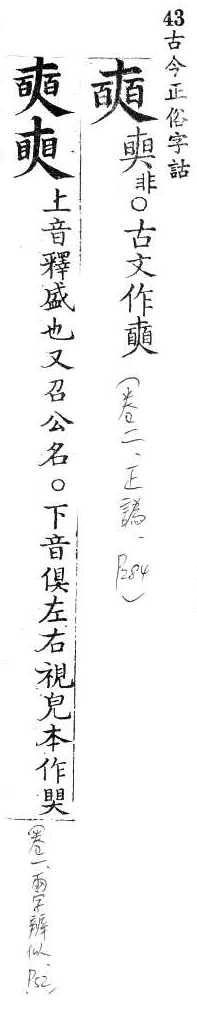 43古今正俗字詁
奭 非○古文作奭(卷二、正譌、P284)
奭 上音釋盛也又召公名○下音俱左右視皃本作(卷一、兩字辨似、P52)